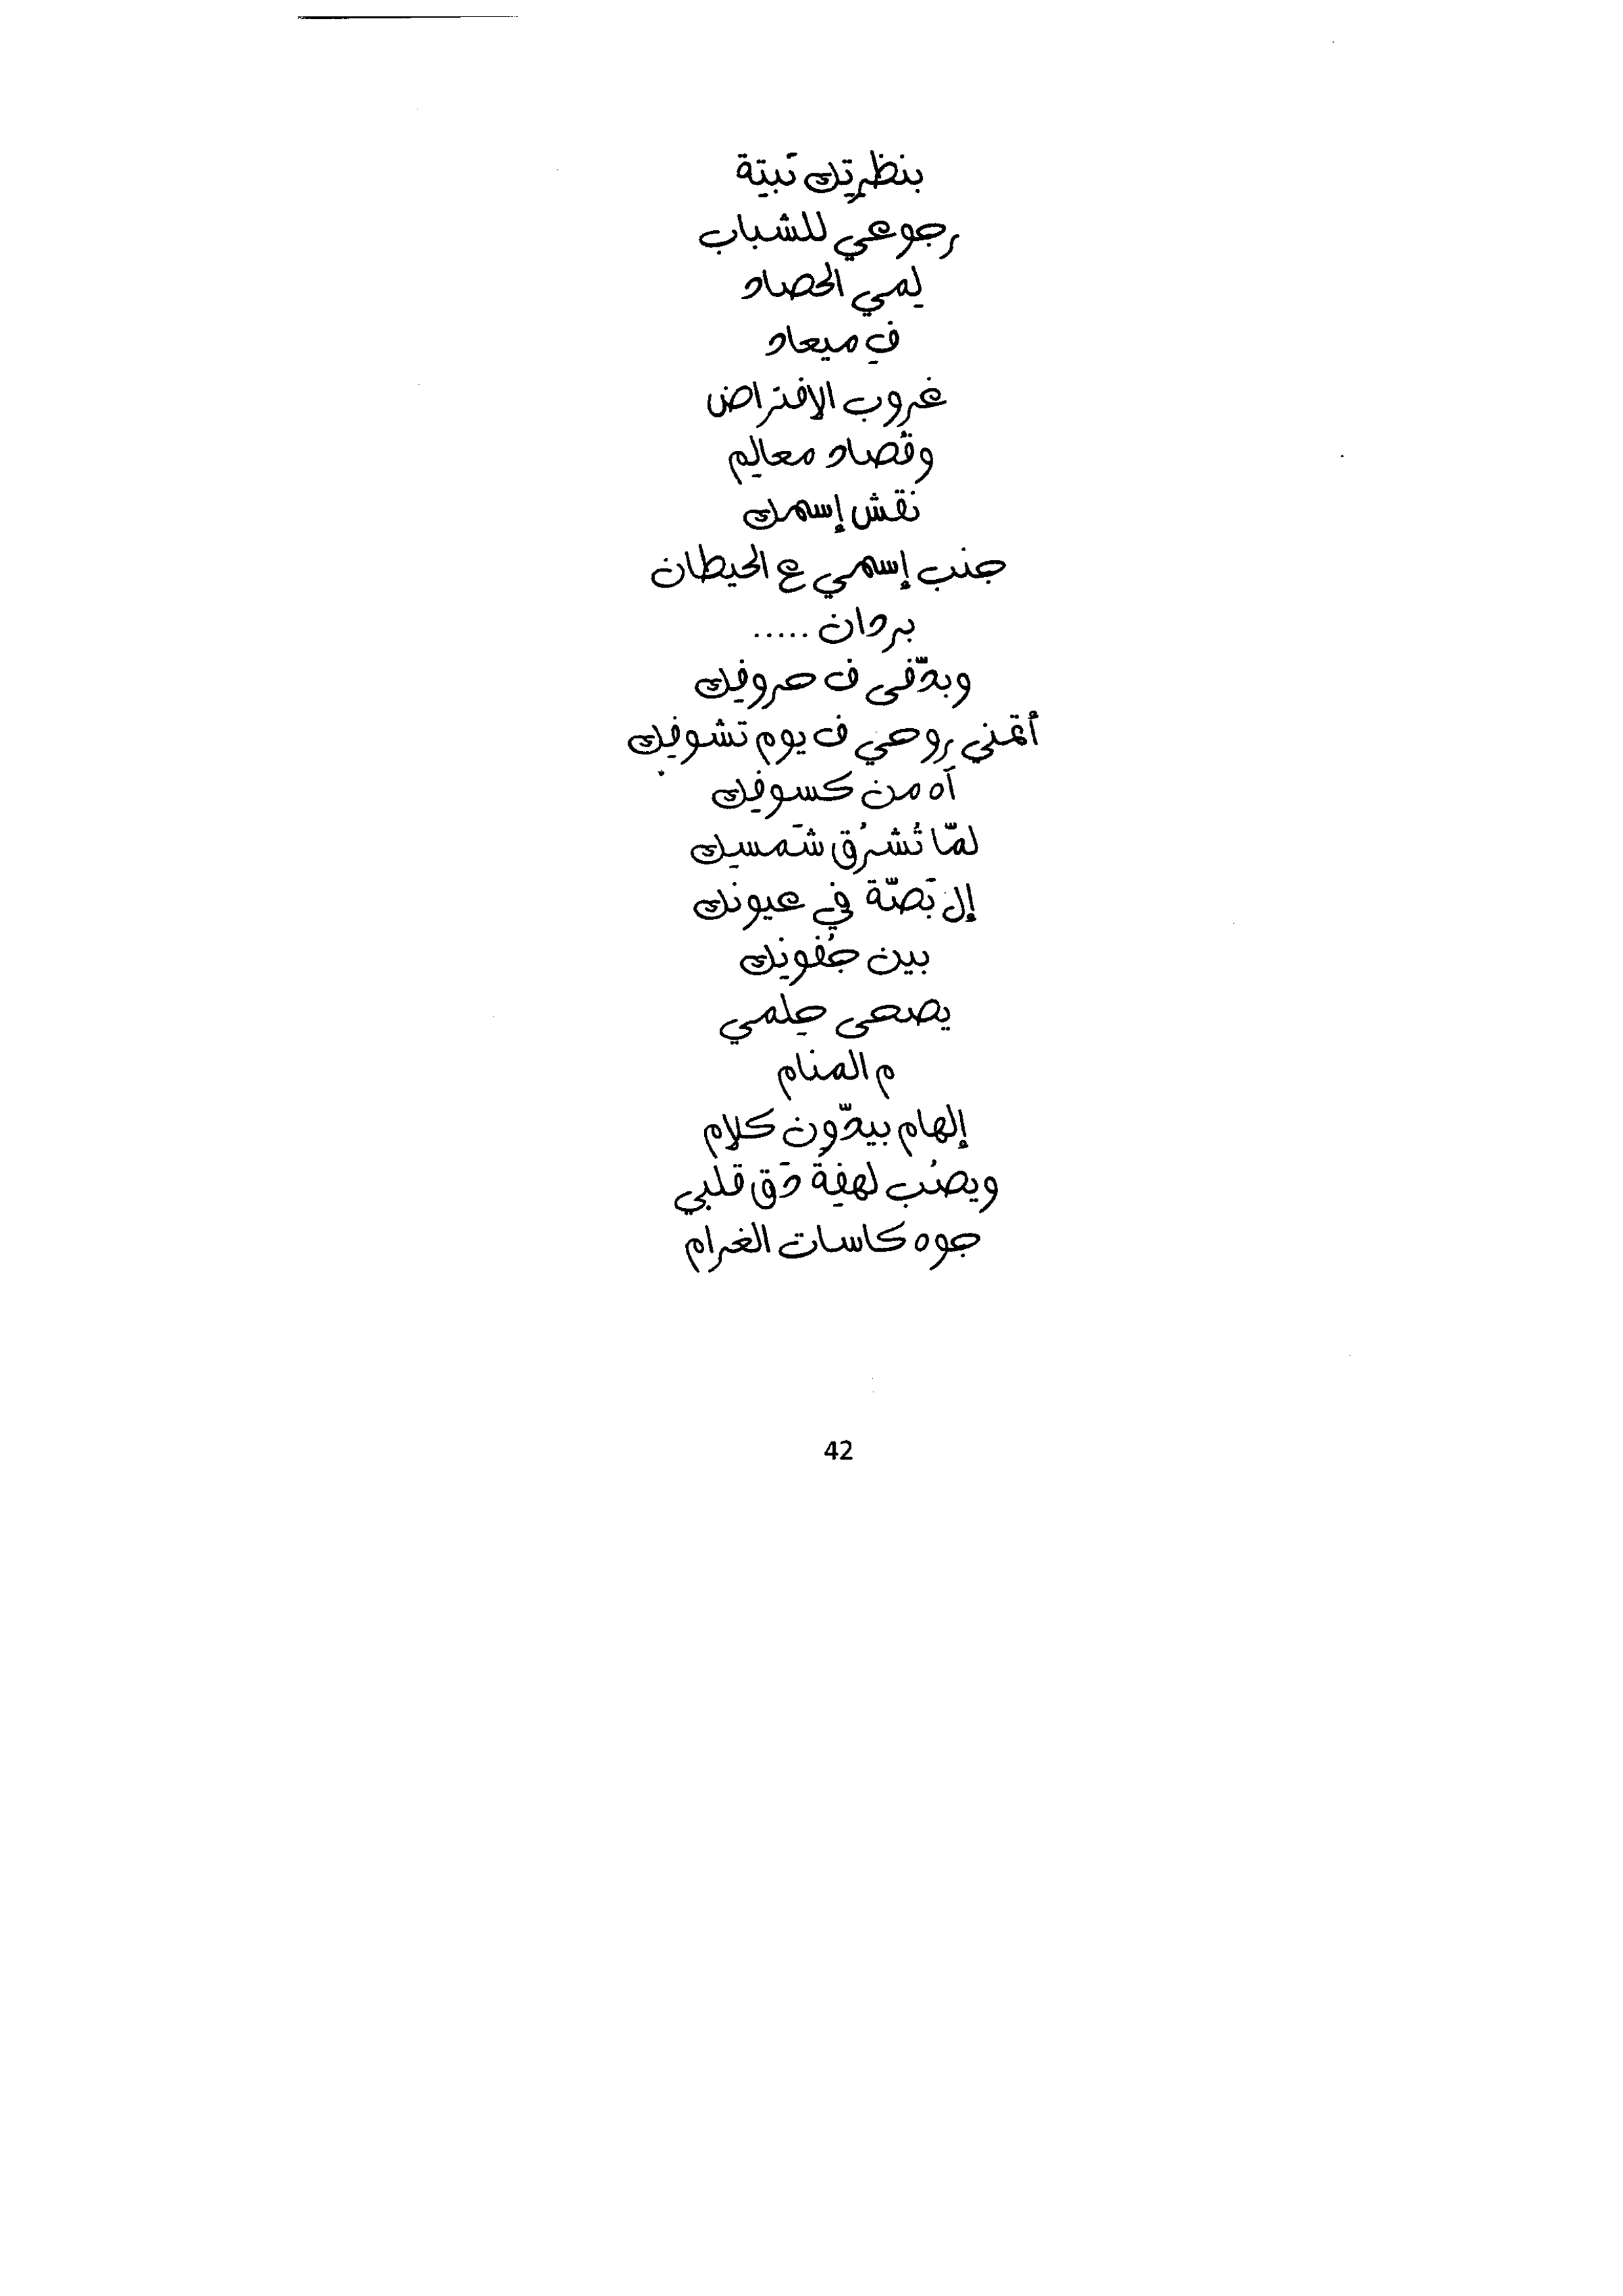 بنظرِتِك تَبتِة
رجوعي للشباب
لِمي الحصاد
فِ ميعاد
غروب الإفتراض
وقُصاد معالِم
نقش إسمك
جنب إسمي ع الحيطان
بردان .....
وبدّفى ف حروفِك
أتمني روحي ف يوم تشوفِك
آه من كسوفِك
لمّا تُشرُق شَمسِك
إل بَصّة في عيونك
بين جُفونِك
يصحى حِلمي
م المنام
إلهام بيدّون كلام
ويصُب لهفِة دَق قلبي
جوه كاسات الغرام
42